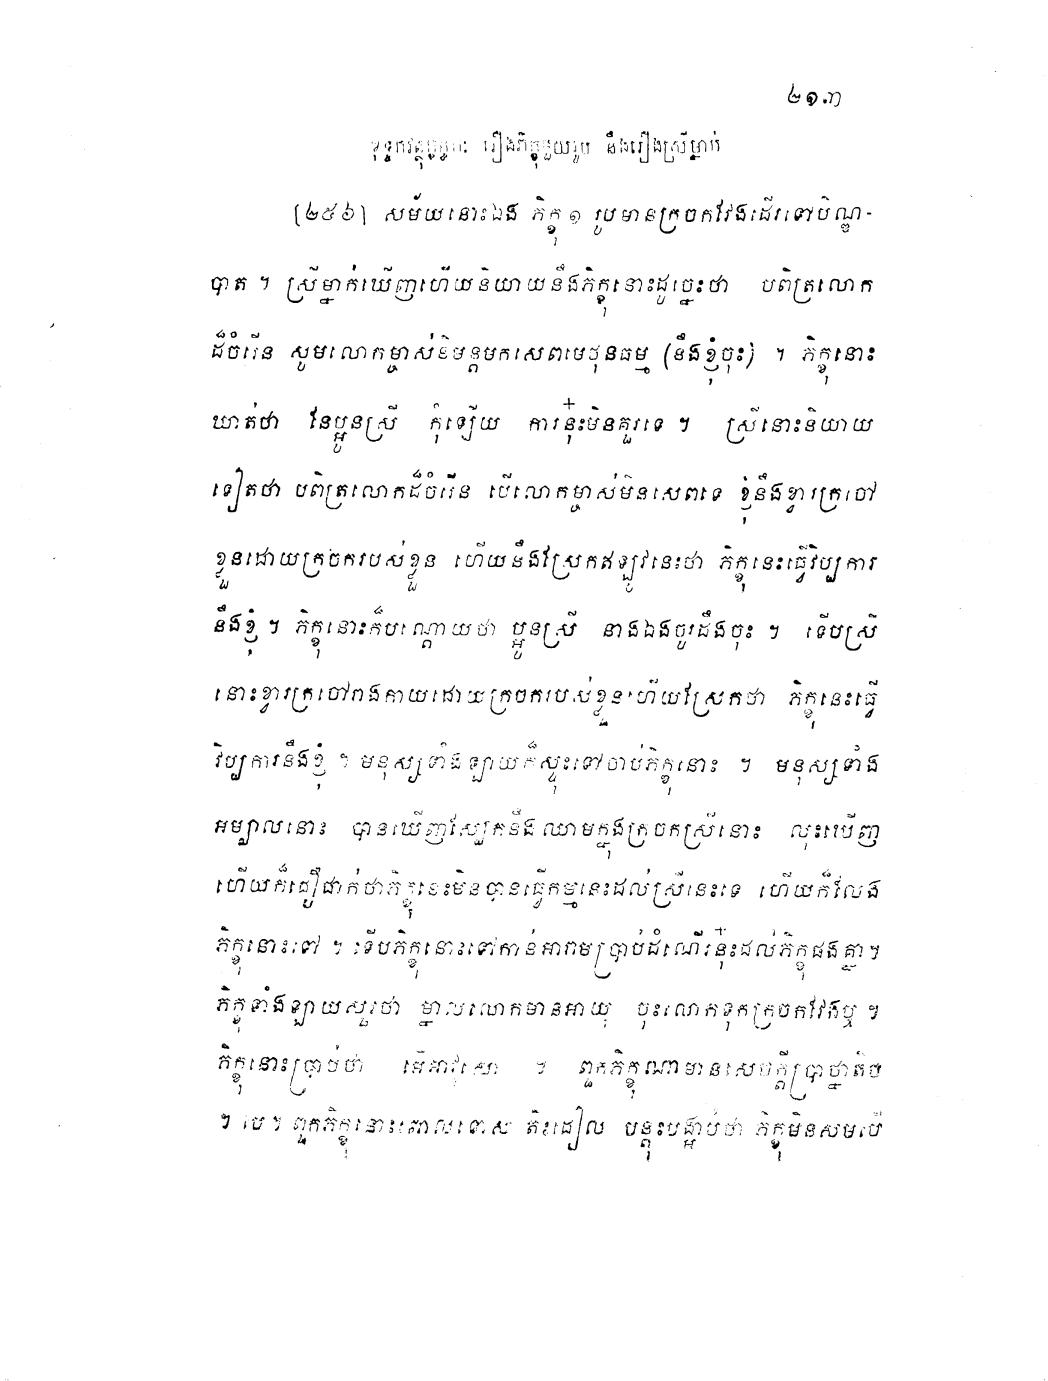 ២១៣
ខុទ្ទកវត្ថុក្ខន្ធកៈ រឿងភិក្ខុមួយរូប នឹងរឿងស្រីម្នាក់
[២៥៦] សម័យនោះឯង ភិក្ខុ ១ រូបមានក្រចកវែងដើរទៅបិណ្ឌ-
បាត ។ ស្រីម្នាក់ឃើញហើយនិយាយនឹងភិក្ខុនោះដូច្នេះថា បពិត្រលោក
ដ៏ចំរើន សូមលោកម្ចាស់និមន្តមកសេពមេថុនធម្ម (នឹងខ្ញុំចុះ) ។ ភិក្ខុនោះ
ឃាត់ថា នែប្អូនស្រី កុំឡើយ ការនុ៎ះមិនគួរទេ ។ ស្រីនោះនិយាយ
ទៀតថា បពិត្រលោកដ៏ចំរើន បើលោកម្ចាស់មិនសេពទេ ខ្ញុំនឹងខ្វារក្រចៅ
ខ្លួនដោយក្រចករបស់ខ្លួន ហើយនឹងស្រែកឥឡូវនេះថា ភិក្ខុនេះធ្វើវិប្បការ
នឹងខ្ញុំ ។ ភិក្ខុនោះក៏បណ្តោយថា ប្អូនស្រី នាងឯងចូរដឹងចុះ ។ ទើបស្រី
នោះខ្វារក្រចៅរាងកាយដោយក្រចករបស់ខ្លួនហើយស្រែកថា ភិក្ខុនេះធ្វើ
វិប្បការនឹងខ្ញុំ ។ មនុស្សទាំងឡាយក៏ស្ទុះទៅចាប់ភិក្ខុនោះ ។ មនុស្សទាំង
អម្បាលនោះ បានឃើញស្បែកនឹងឈាមក្នុងក្រចកស្រីនោះ លុះឃើញ
ហើយក៏ជឿជាក់ថាភិក្ខុនេះមិនបានធ្វើកម្មនេះដល់ស្រីនេះទេ ហើយក៏លែង
ភិក្ខុនោះទៅ ។ ទើបភិក្ខុនោះទៅកាន់អារាមប្រាប់ដំណើរនុ៎ះដល់ភិក្ខុផងគ្នា។
ភិក្ខុទាំងឡាយសួរថា ម្នាលលោកមានអាយុ ចុះលោកទុកក្រចកវែងឬ ។
ភិក្ខុនោះប្រាប់ថា អើអាវុសោ ។ ពួកភិក្ខុណាមានសេចក្តីប្រាថ្នាតិច
។ បេ។ ពួកភិក្ខុនោះពោលទោស តិះដៀល បន្តុះបង្អាប់ថា ភិក្ខុមិនសមបើ